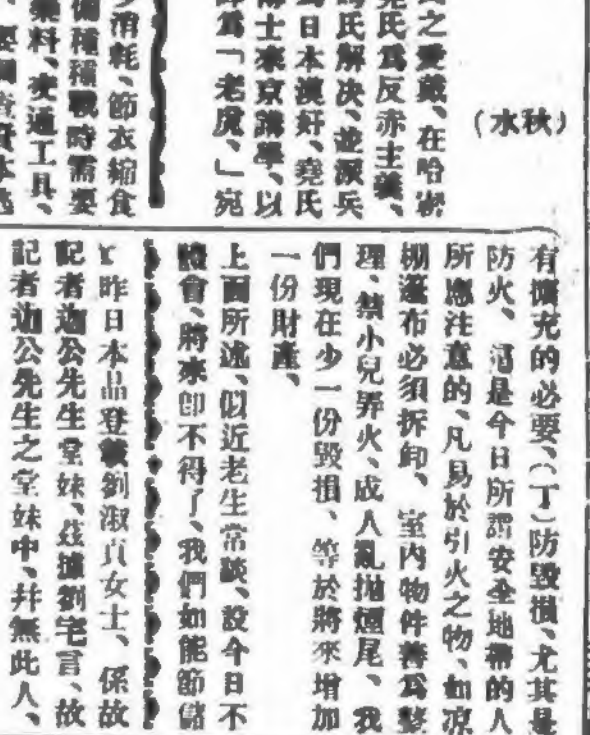 （水秋）
之愛戴、在哈
堯氏爲反赤主義、
氏解決、並派兵
爲日本漢奸、堯氏
博士來京講學、以
爲「老虎、」宛
消耗、節衣縮食
備種種戰時需要
料、交通工具、
有擴充的必要、（丁）防毀損、尤其是
防火、是今日所謂安全地帶的人
所應注意的、凡易於引火之物、如凉
棚蓬布必須拆卸、室内物件善爲整
理、禁小兒弄火、成人亂抛煙尾、我
們現在少一份毀損、等於將來增加
一份財產、
上面所述、似近老生常談、設今日不
體會、將來即不得了、我們如能節儲
昨日本晶登載劉淑貞女士、係故
記者迦公先生堂妹、茲據劉宅言、故
記者迦公先生之堂妹中、并無此人、